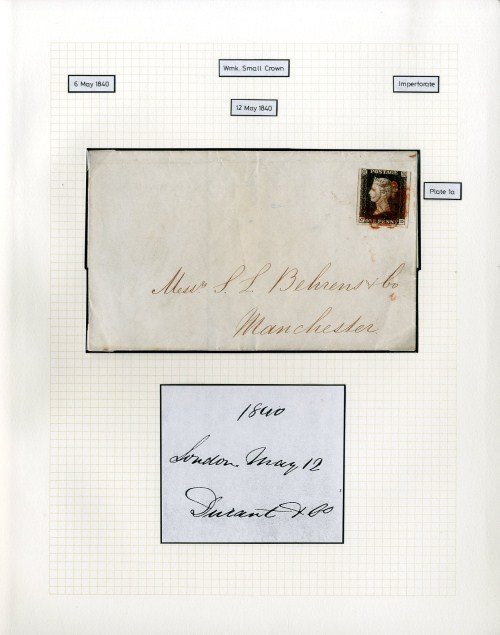 Wmk. Small Crown
6 May 1840
Imperforate
12 May 1840
Plate 1a
POSTAGE
ONE PENNY
Messrs S. L. Behrens & Co
Manchester
1840
London May 12
Durant & Co